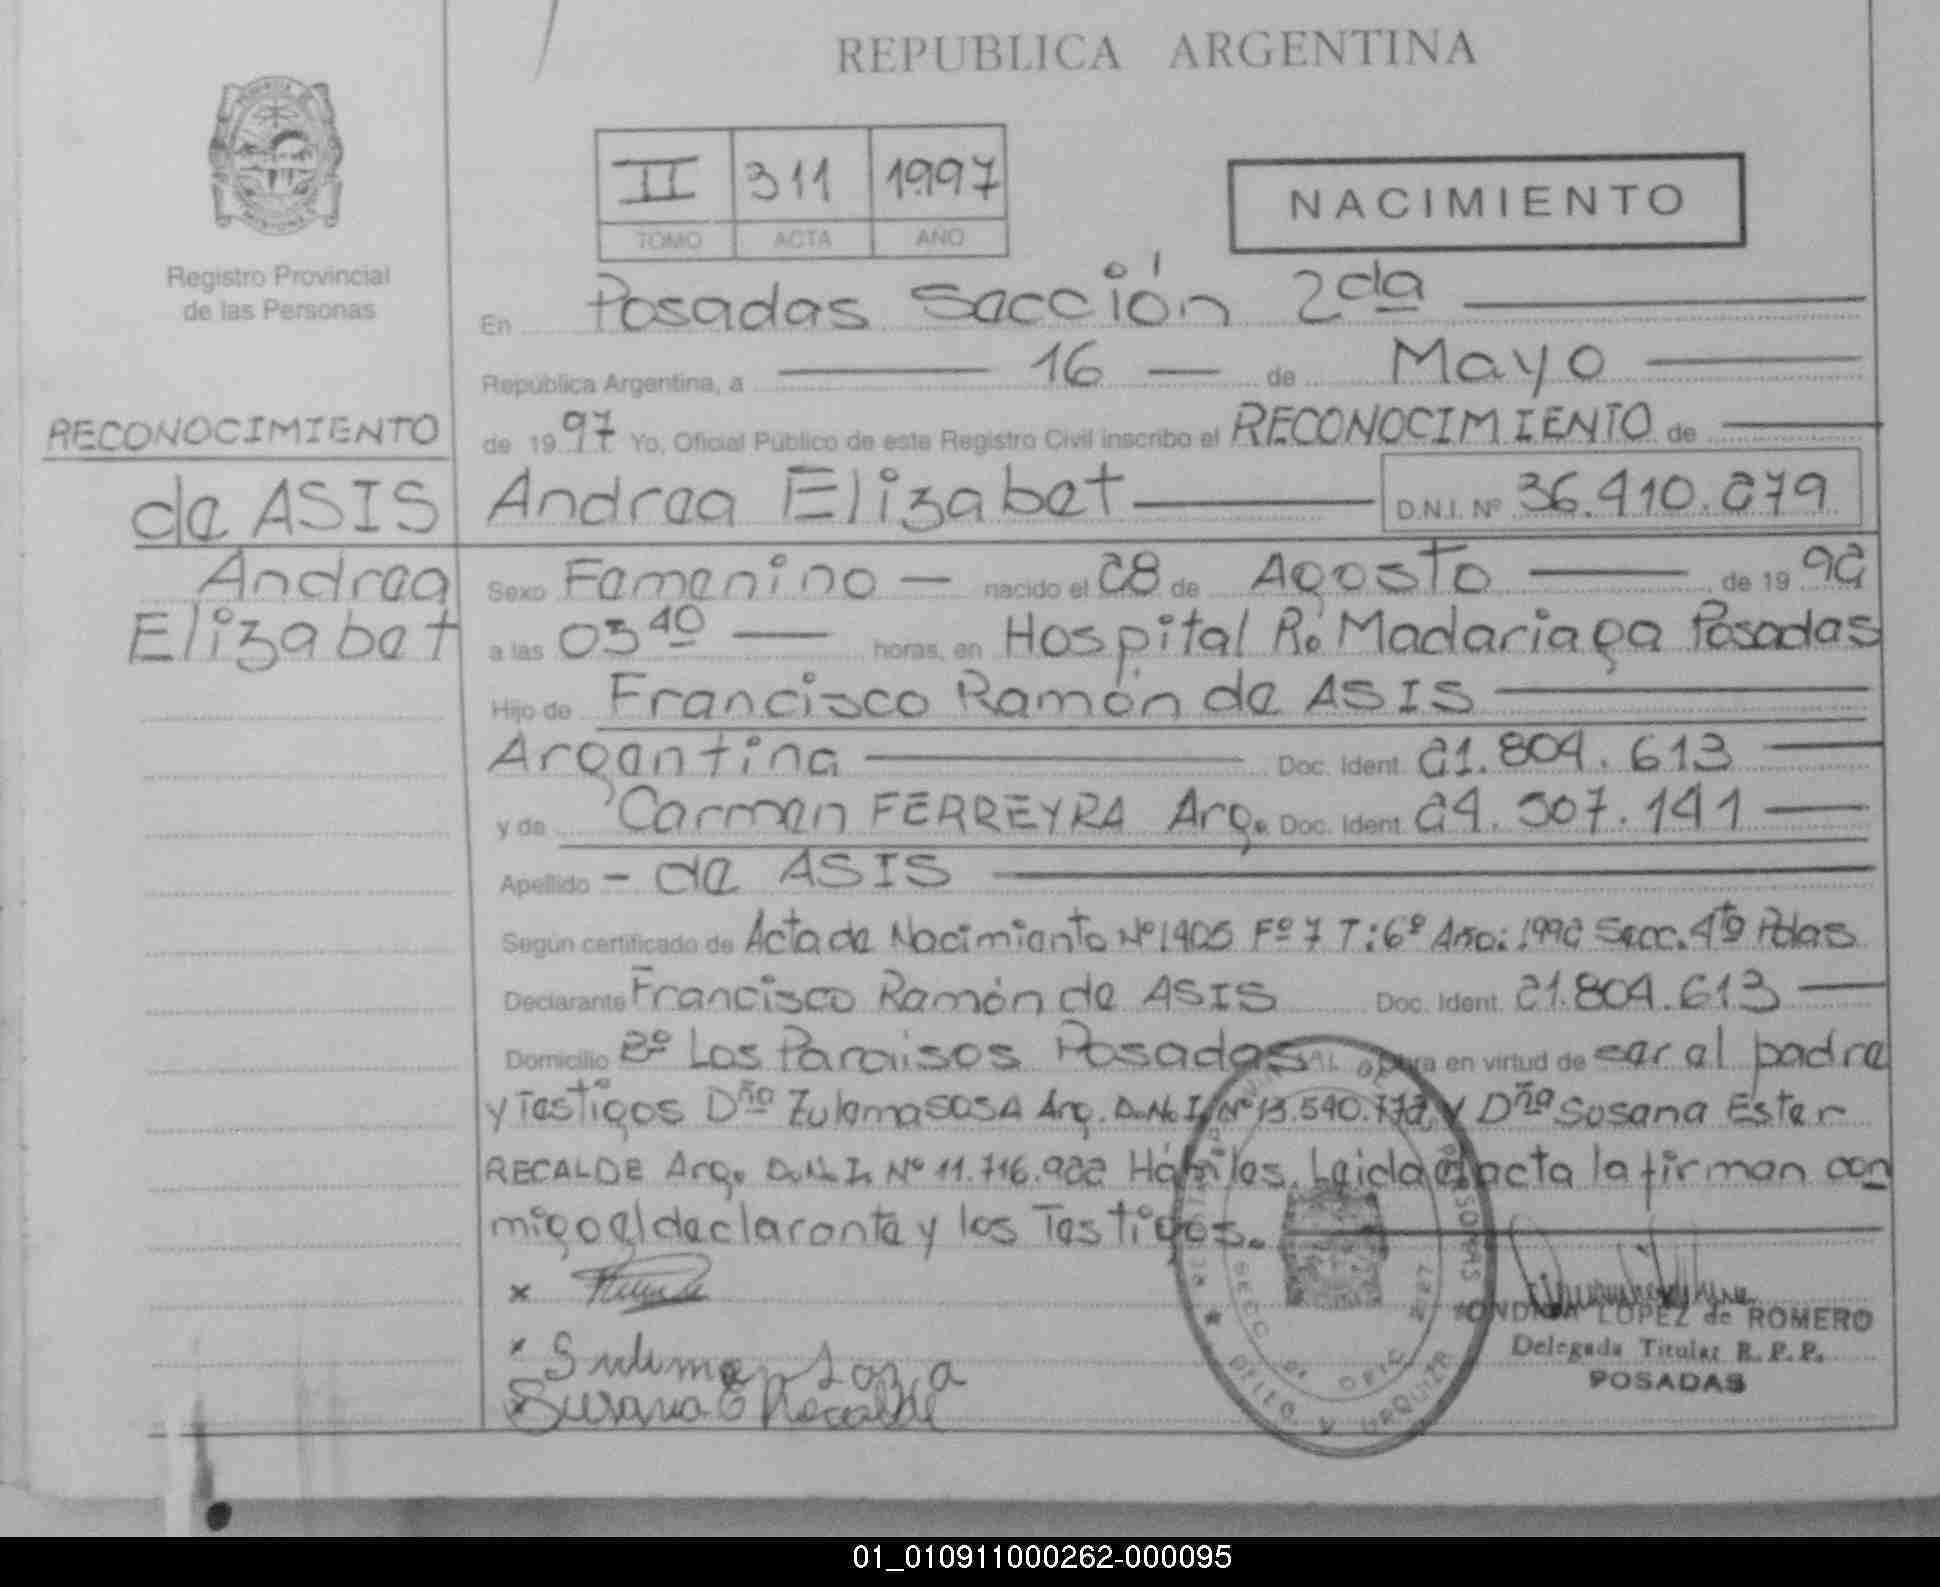 REPUBLICA ARGENTINA
II 311 1997
TOMO ACTA AÑO
NACIMIENTO
Registro Provincial
de las Personas
En Posadas Sección 2da
República Argentina, a 16 de Mayo
de 1997 Yo, Oficial Público de este Registro Civil inscribo el RECONOCIMIENTO de
RECONOCIMIENTO
de ASIS
Andrea
Elizabet
Andrea Elizabet D.N.I. Nº 36.410.279
Sexo Femenino — nacido el 28 de Agosto de 1992
a las 03 40 — horas, en Hospital R. Madariaga Posadas
Hijo de Francisco Ramón de ASIS
Argentina Doc. Ident. 21.804.613
y de Carmen FERREYRA Arg. Doc. Ident. 24.507.141
Apellido - de ASIS
Según certificado de Acta de Nacimiento Nº 1405 Fº 7 T: 6º Año: 1992 Secc. 4to Pdas
Declarante Francisco Ramón de ASIS Doc. Ident. 21.804.613
Domicilio Bº Los Paraisos Posadas obra en virtud de ser el padre
y Testigos Dña Zulema SOSA Arg. D.N.I. Nº 13.540.772 y Dña Susana Ester
RECALDE Arg. D.N.I. Nº 11.716.922 Hábiles. Leida el acta la firman con
migo el declarante y los Testigos.
Sulema Sosa
Susana E Recalde
LOPEZ de ROMERO
Delegada Titular R.P.P.
POSADAS
01_010911000262-000095